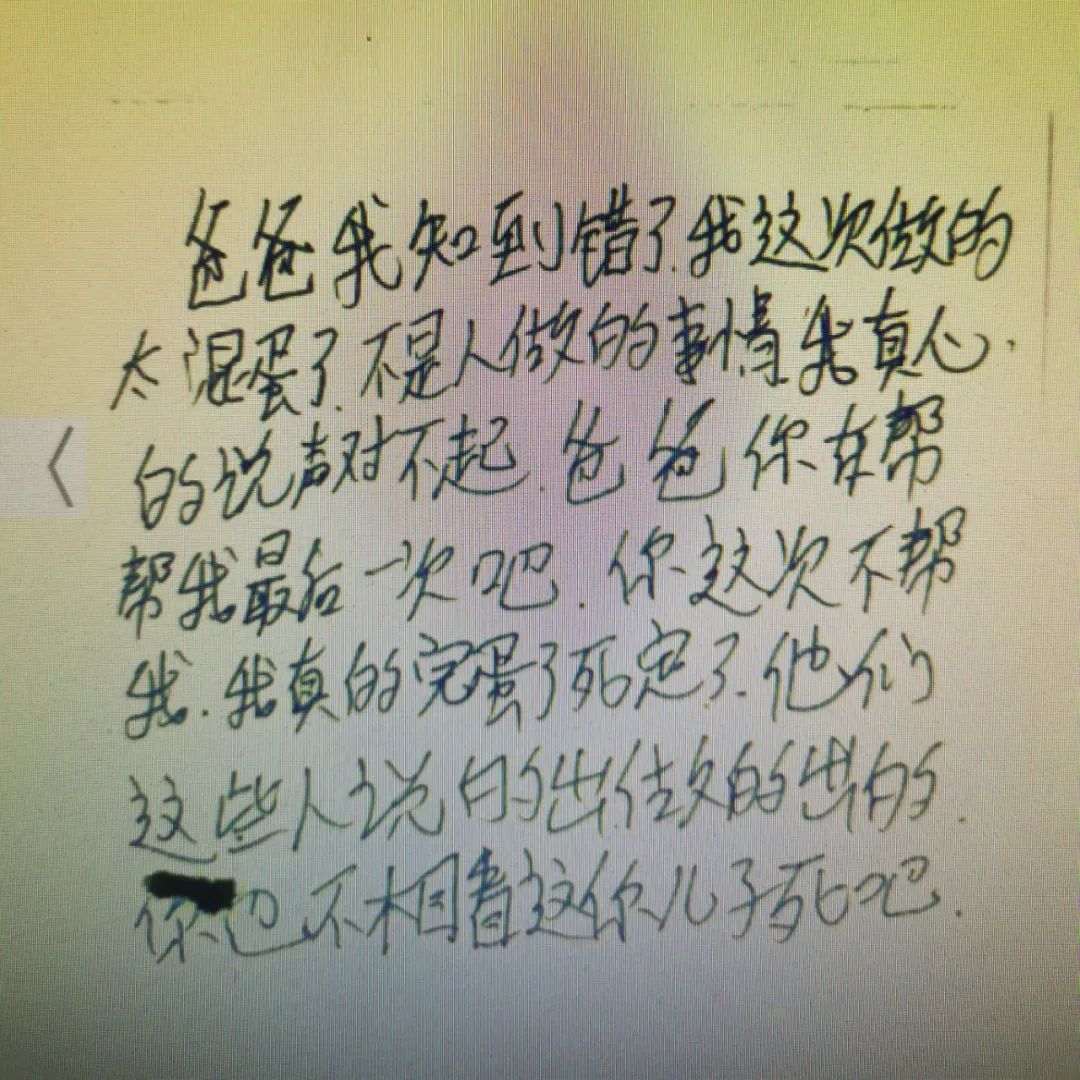 爸爸我知到错了.我这次做的
太混蛋了.不是人做的事情我真心.
的说声对不起.爸爸你在帮
帮我最后一次吧.你这次不帮
我.我真的完蛋了死定了.他们
这些人说的出做的出的.
你也不相看这你儿子死吧.